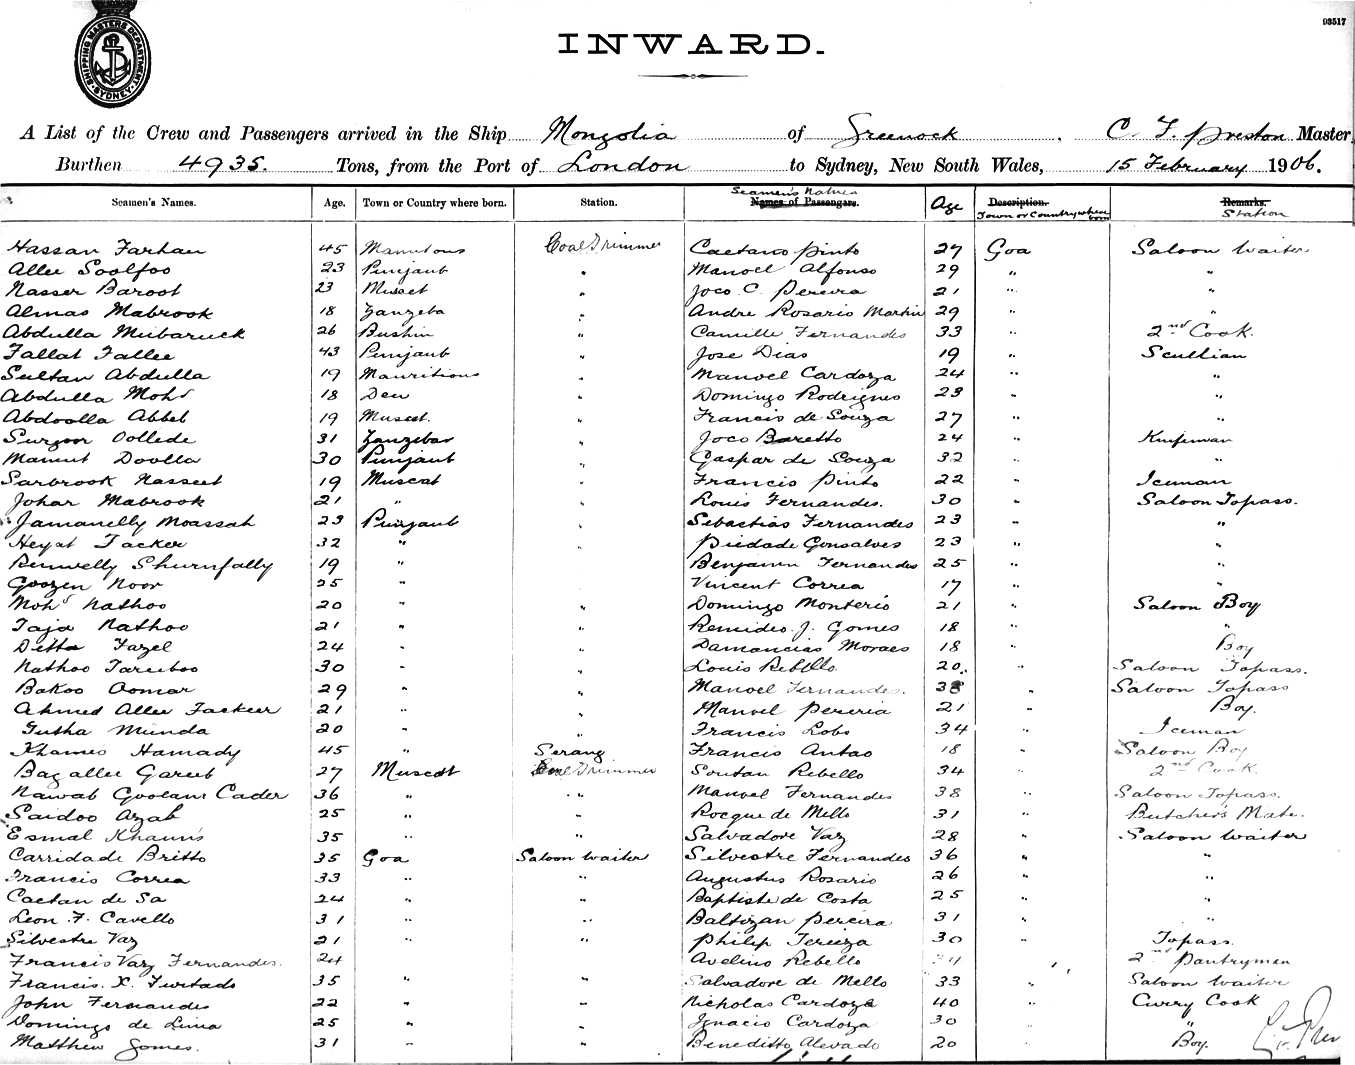 93517
SHIPPING MASTERS DEPARTMENT SYDNEY
INWARD.
A List of the Crew and Passengers arrived in the Ship Mongolia of Greenock . C. F. Preston Master,
Burthen 4935. Tons, from the Port of London to Sydney, New South Wales, 15 February 1906.
Seamen's Names. Age. Town or Country where born. Station. Seamen's Names Names of Passengers. Age Description. Town or Country where born Remarks. Station
Hassan Farhan 45 Coal Trimmer Caetano Pinto 27 Goa Saloon Waiter
Allee Soolfoo 23 Punjaub " Manoel Alfonso 29 " "
Nasser Baroot 23 Muscet " Joco C. Pereira 21 " "
Almas Mabrook 18 Zanzeba " Andre Rosario Martin 29 " "
Abdulla Mubaruck 26 Bushin " Camille Fernandes 33 " 2nd Cook.
Fallat Fallee 43 Punjaub " Jose Dias 19 " Scullian
Sultan Abdulla 19 Mauritious " Manoel Cardoza 24 " "
Abdulla Mohd 18 Den " Domingo Rodrignes 23 " "
Abdoolla Abbel 19 Muscet. " Francis de Souza 27 " "
Surgoor Oollede 31 Zanzebar " Joco Baretto 24 " Knifeman
Mamut Doolla 30 Punjaub " Gaspar de Souza 32 " "
Sarbrook Nasseet 19 Muscat " Francis Pinto 22 " Iceman
Johar Mabrook 21 " " Louis Fernandes. 30 " Saloon Topass.
Jamanelly Moassah 23 Punjaub " Sebastias Fernandes 23 " "
Heyat Tacker 32 " " Piedade Gonsalves 23 " "
Shurnfally 19 " " Benjamin Fernandes 25 " "
Goozen Noor 25 " Vincent Correa 17 " "
Mohd Nathoo 20 " " Domingo Monterio 21 " Saloon Boy
Taja Nathoo 21 " " Remideo. J. Gomes 18 " "
Ditta Fazel 24 " " Damancias Moraes 18 " Boy
Nathoo Tareeboo 30 " " Louis Rebello 20. " Saloon Topass.
Bakoo Oomar 29 " " Manoel Fernandes. 38 " Saloon Topass
Ahmed Allee Fackeer 21 " " Manoel Pereria 21 " Boy.
Gutha Munda 20 " " Francis Lobo 34 " Iceman
Khameo Hamady 45 " Serang Francis Antao 18 " Saloon Boy
Bagallee Gareeb 27 Muscat Coal Trimmer Soutan Rebello 34 " 2nd Cook.
Nawab Goolam Cader 36 " " Manoel Fernandes 38 " Saloon Topass.
Saidoo Azab 25 " " Rocque de Mello 31 " Butcher's Mate.
Esmal Khamis 35 " " Salvadore Vaz 28 " Saloon Waiter
Carridade Britto 35 Goa Saloon Waiter Silvestre Fernandes 36 " "
Francis Correa 33 " " Augustus Rosario 26 " "
Caetan de Sa 24 " " Baptiste de Costa 25 " "
Leon F. Cavello 31 " " Baltizan Pereira 31 " "
Silvestre Vaz 21 " " Philip Tereiza 30 " Topass.
Francis Vaz Fernandes. 24 Avelino Rebello 2nd Pantryman
Francis. X. Furtado 35 " " Salvadore de Mello 33 " Saloon Waiter
John Fernandes 22 " " Nicholas Cardoza 40 " Curry Cook
Domingo de Lima 25 " " Ignacio Cardoza 30 " "
Matthew Gomes. 31 " " Beneditto Alevado 20 " Boy.